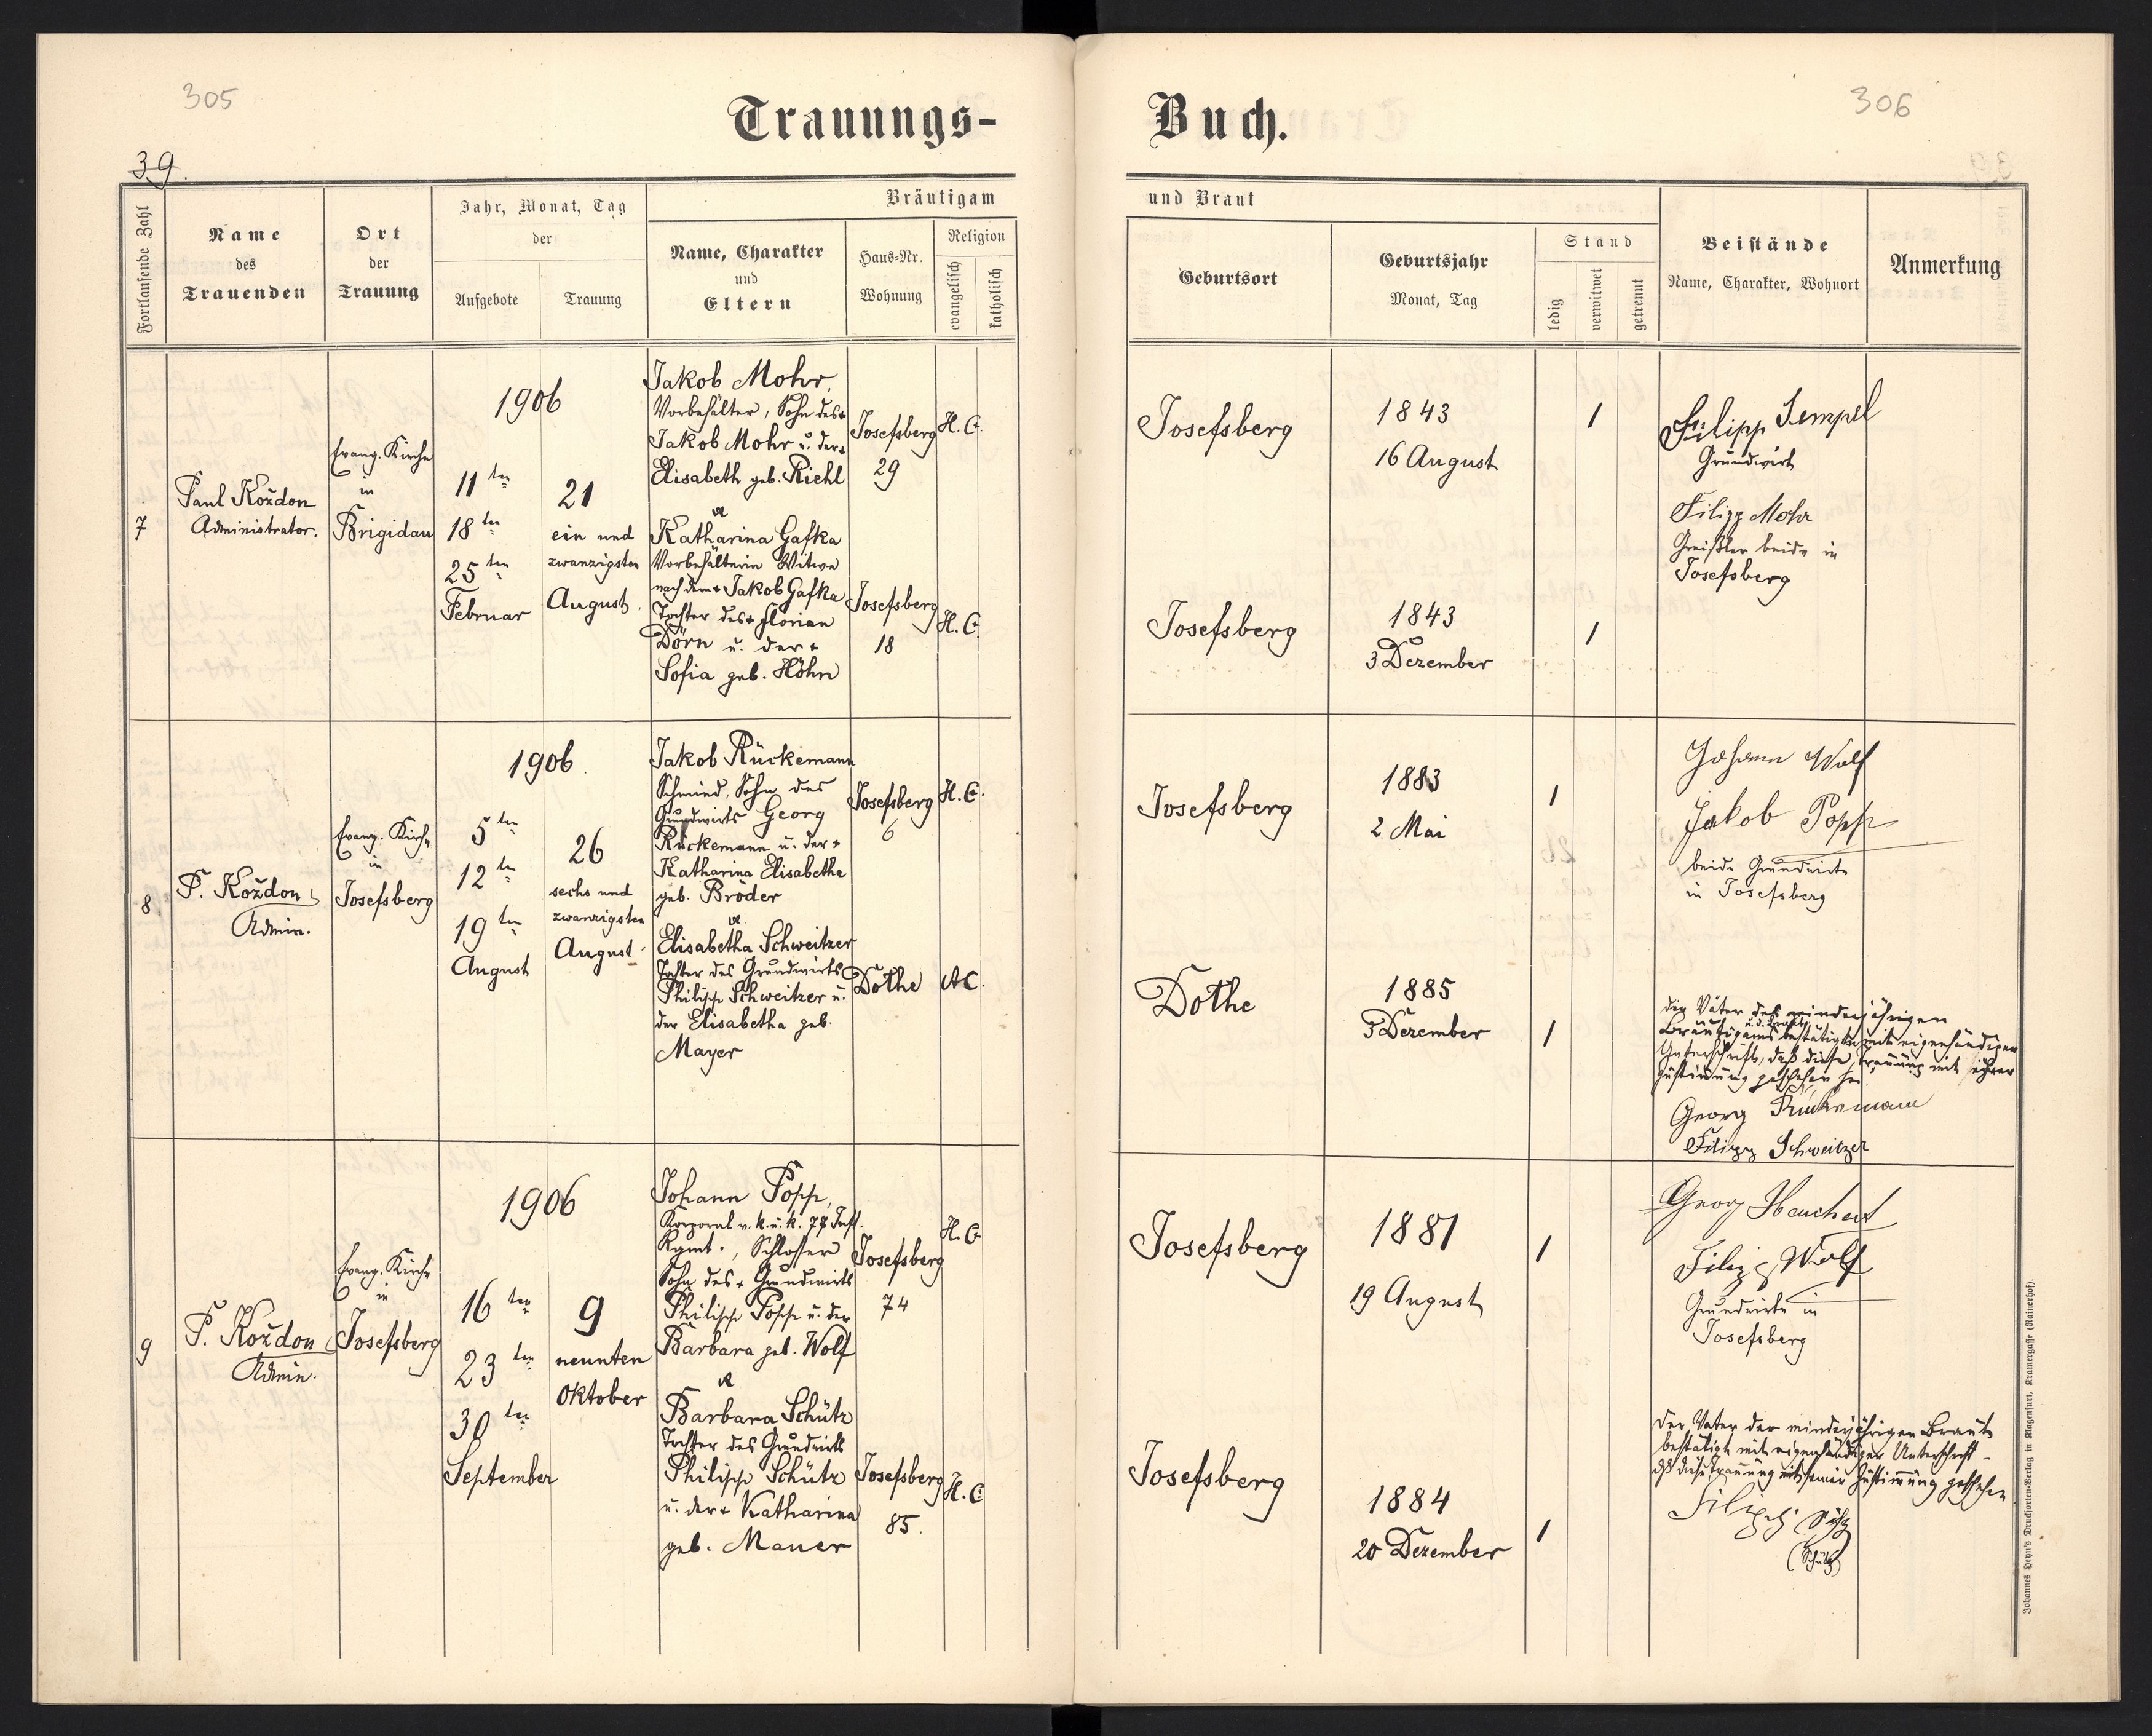 305
306
Trauungs-
Buch.
39.
Fortlaufende Zahl
Name
des
Trauenden
Ort
der
Trauung
Jahr, Monat, Tag
der
Aufgebote
Trauung
Bräutigam
Name, Charakter
und
Eltern
Haus-Nr.
Wohnung
Religion
evangelisch
katholisch
und Braut
Geburtsort
Geburtsjahr
Monat, Tag
Stand
ledig
verwitwet
getrennt
Beistände
Name, Charakter, Wohnort
Anmerkung
7
Paul Koždon
Administrator.
Evang. Kirche
in
Brigidau
1906
11ten
18ten
25ten
Februar
21
ein und
zwanzigsten
August
Jakob Mohr,
Vorbehälter, Sohn des +
Jakob Mohr u. der +
Elisabeth geb. Riehl
u
Katharina Gafka
Vorbehälterin Witwe
nach dem + Jakob Gafka
Tochter des + Florian
Dörn u. der +
Sofia geb. Höhn
Josefsberg
29
H. C.
Josefsberg
18
H. C.
Josefsberg
1843
16 August
1
Josefsberg
1843
3 Dezember
1
Filipp Jempel
Grundwirt
Filipp Mohr
Greißler beide in
Josefsberg
8
P. Koždon
Admin.
Evang. Kirche
in
Josefsberg
1906
5ten
12ten
19ten
August
26
sechs und
zwanzigsten
August
Jakob Rückemann
Schmied, Sohn des
Grundwirts Georg
Rückemann u. der +
Katharina Elisabetha
geb. Bröder
u
Elisabetha Schweitzer
Tochter des Grundwirts
Philipp Schweitzer u.
der Elisabetha geb.
Mayer
Josefsberg
6
H. C.
Dothe
A C.
Josefsberg
1883
2 Mai
1
Dothe
1885
3 Dezember
1
Johann Wolf
Jakob Popp
beide Grundwirte
in Josefsberg
Die Väter des minderjährigen
u. d. Braut
Bräutigams bestätigen mit eigenhändiger
Unterschrift, daß diese Trauung mit ihrer
Zustimmung geschehen sei
Georg Rückemann
Filipp Schweitzer
9
P. Koždon
Admin.
Evang. Kirche
in
Josefsberg
1906
16ten
23ten
30ten
September
9
neunten
Oktober
Johann Popp,
Korporal v. k. u. k. 77 Inft.
Rgmt., Schlosser
Sohn des + Grundwirts
Philipp Popp u. der
Barbara geb. Wolf
u
Barbara Schütz
Tochter des Grundwirts
Philipp Schütz
u. der + Katharina
geb. Mauer
Josefsberg
74
H. C
Josefsberg
85.
H. C
Josefsberg
1881
19 August
1
Josefsberg
1884
20 Dezember
1
Georg
Filipp Wolf
Grundwirte in
Josefsberg
Der Vater der minderjährigen Braut
bestätigt mit eigenhändiger Unterschrift -
daß diese Trauung mit seiner Zustimmung geschehen
Filipp
(Schütz)
Johannes Heyn's Drucksorten-Verlag in Klagenfurt, Kramergasse (Rainerhof)